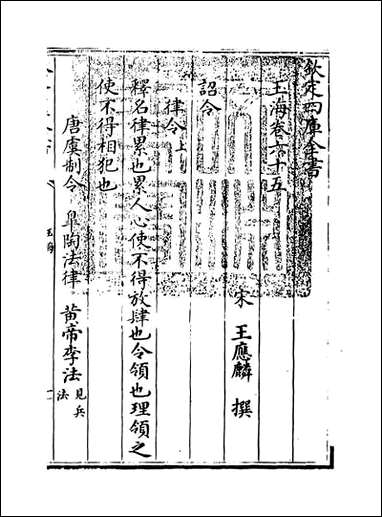 欽定四庫全書
玉海卷六十五
宋 王應麟 撰
詔令
律令上
釋名律累也累人心使不得放肆也令領也理領之
使不得相犯也
唐虞制令 皋陶法律 黄帝李法見兵法
玉海
一